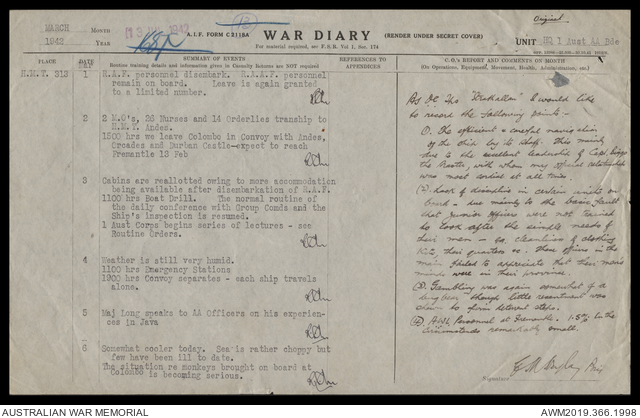 MARCH MONTH
1942 YEAR
A.I.F. FORM C2118A
WAR DIARY
(RENDER UNDER SECRET COVER)
For material required, see F.S.R. Vol 1, Sec. 174
Original.
UNIT HQ 1 Aust AA Bde
PLACE
DATE
SUMMARY OF EVENTS
Routine training details and information given in Casualty Returns are NOT required
REFERENCES TO
APPENDICES
C.O.'s REPORT AND COMMENTS ON MONTH
(On Operations, Equipment, Movement, Health, Administration, etc.)
H.M.T. 313
1 R.A.F. personnel disembark. R.A.A.F. personnel
remain on board. Leave is again granted
to a limited number.
2 2 M.O's, 26 Nurses and 14 Orderlies tranship to
H.M.T. Andes.
1500 hrs we leave Colombo in Convoy with Andes,
Orcades and Durban Castle-expect to reach
Fremantle 13 Feb
3 Cabins are reallotted owing to more accommodation
being available after disembarkation of R.A.F.
1100 hrs Boat Drill. The normal routine of
the daily conference with Group Comds and the
Ship's inspection is resumed.
1 Aust Corps begins series of lectures - see
Routine Orders.
4 Weather is still very humid.
1100 hrs Emergency Stations
1900 hrs Convoy separates - each ship travels
alone.
5 Maj Long speaks to AA Officers on his experien-
ces in Java
6 Somewhat cooler today. Sea is rather choppy but
few have been ill to date.
The situation re monkeys brought on board at
Colombo is becoming serious.
As OC Tps I would like
to record the following points:-
(1) The efficient & careful navigation
of the ship by its Staff. This mainly
due to the excellent leadership of Capt
the Master, with whom my official relationship
was most cordial at all times.
(2) Lack of discipline in certain units on
board - due mainly to the basic fault
that junior officers were not trained
to look after the simple needs of
their men - eg. cleanliness of clothing
kits, their quarters etc. These officers in the
main failed to appreciate that their men's
minds were in their province.
(3) Gambling was again somewhat of a
bugbear though little resentment was
shown to
(4) AWL Personnel at Fremantle - 1.5% In the
circumstances remarkably small.
Signature
AUSTRALIAN WAR MEMORIAL
AWM2019.366.1998